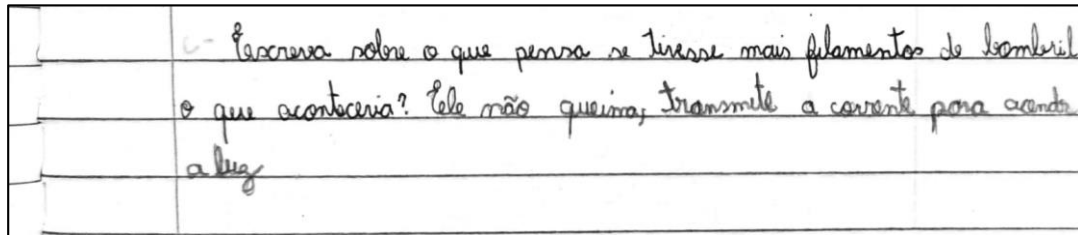 c- Escreva sobre o que pensa se tivesse mais filamentos de bombril
o que aconteceria? Ele não queima, transmite a corrente para acender
a luz